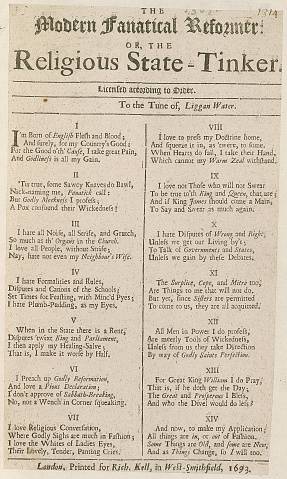 THE
Modern Fanatical Reformer:
OR, THE
Religious State-Tinker.
Licensed according to Order.
To the Tune of, Liggan Water.
I
I'm Born of English Flesh and Blood;
And surely, for my Country's Good:
For the Good o'th' Cause, I take great Pain,
And Godliness is all my Gain.
II
'Tis true, some Sawcy Knaves do Bawl,
Nick-naming me, Fanatick call:
But Godly Meekness I profess;
A Pox confound their Wickedness!
III
I hate all Noise, all Strife, and Grutch,
So much as th' Organs in the Church.
I love all People, without Strife;
Nay, hate not even my Neighbour's Wife.
IV
I hate Formalities and Rules,
Disputes and Canons of the Schools;
Set Times for Feasting, with Minc'd Pyes;
I hate Plumb-Pudding, as my Eyes.
V
When in the State there is a Rent,
Disputes 'twixt King and Parliament,
I then apply my Healing-Salve;
That is, I make it worse by Half.
VI
I Preach up Godly Reformation,
And love a Pious Declaration;
I don't approve of Sabbath-Breaking,
No, not a Wench in Corner squeaking.
VII
I love Religious Conversation,
Where Godly Sighs are much in Fashion;
I love the Whites of Ladies Eyes,
Their Lovely, Tender, Panting Cries.
VIII
I love to press my Doctrine home,
And squeeze it in, as 'twere, to some.
When Hearts do fail, I take their Hand,
Which cannot my Warm Zeal withstand.
IX
I love not Those who will not Swear
To be true to th' King and Queen, that are;
And if King James should come a Main,
To Say and Swear as much again.
X
I hate Disputes of Wrong and Right;
Unless we get our Living by't;
To Talk of Governments and States,
Unless we gain by these Debates.
XI
The Surplice, Cope, and Mitre too,
Are Things to me that will not do.
But yet, since Sisters are permitted
To come to us, they are all acquitted.
XII
All Men in Power I do profess,
Are meerly Tools of Wickedness,
Unless from us they take Direction
By way of Godly Saints Perfection.
XIII
For Great King William I do Pray,
That is, if he doth get the Day,
The Great and Prosperous I Bless,
And who the Divel would do less?
XIV
And now, to make my Application;
All things are in, or out of Fashion.
Some Things are Old, and some are New,
And as Things Change, so I will too.
London, Printed for Rich. Kell, in West-Smithfield, 1693.